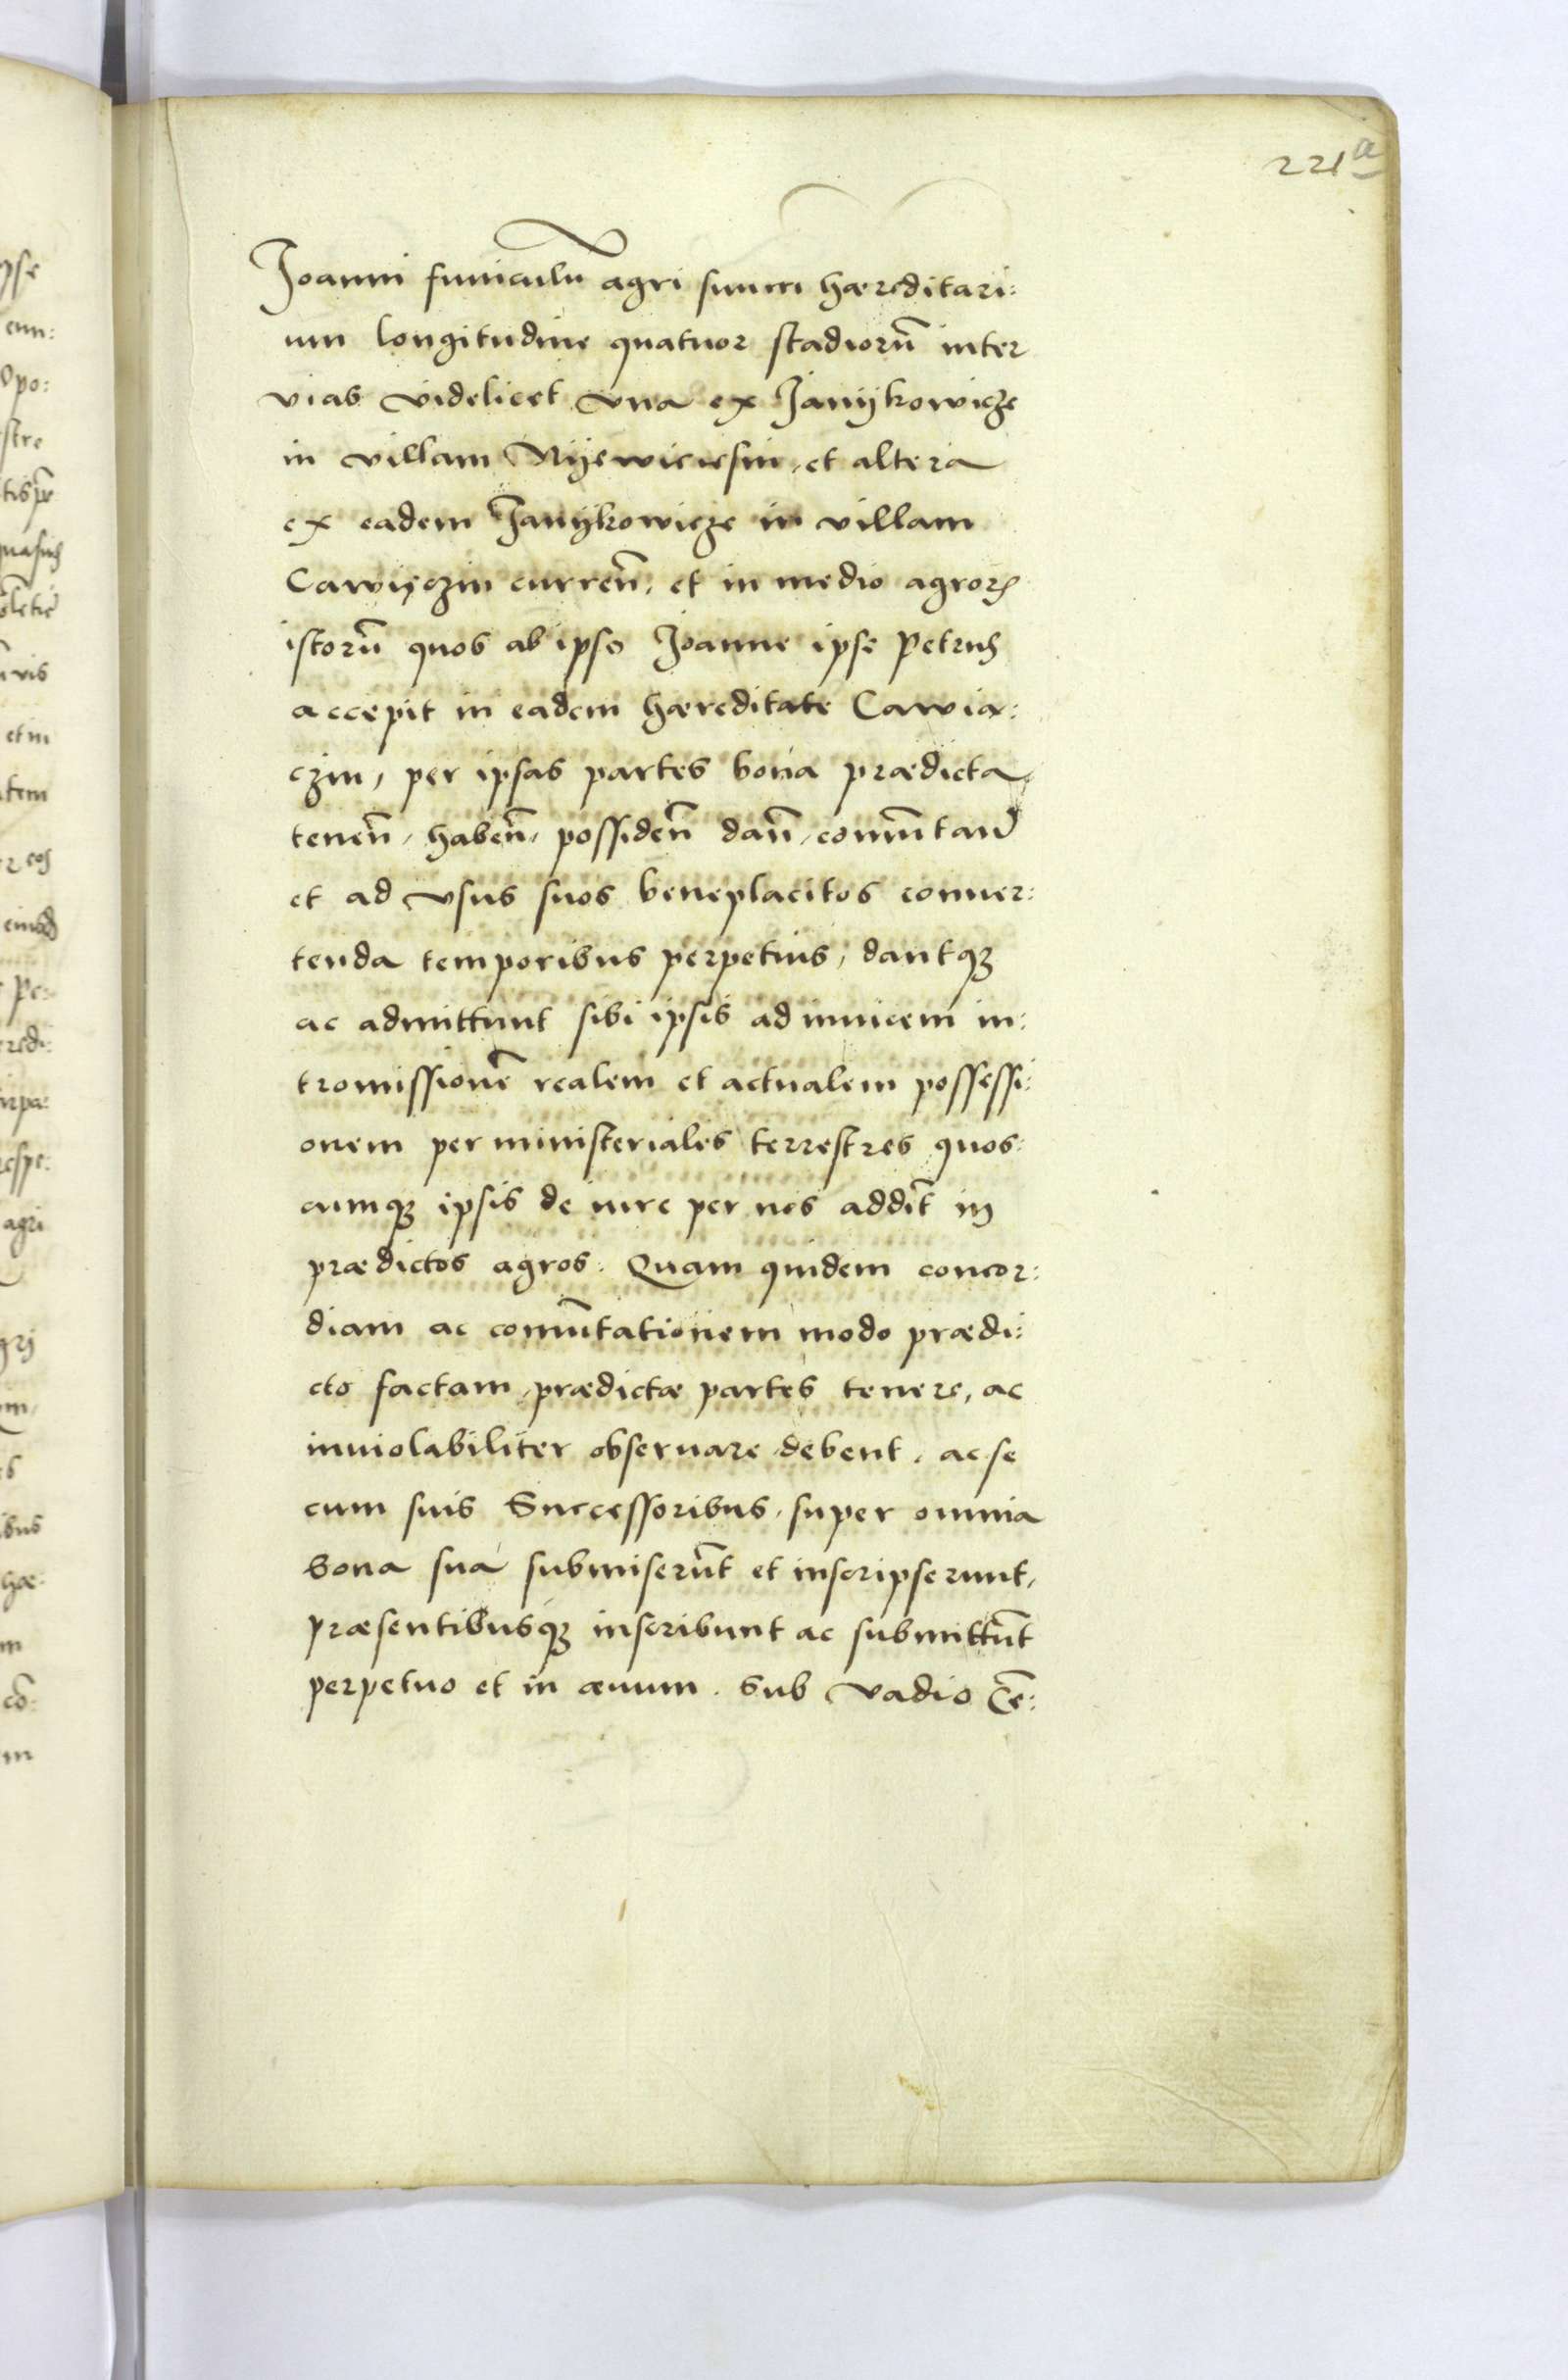 221a
Joanni funiculũ agri suum hæreditari:
um longitudine quatuor stadiorũ inter
vias videlicet vna ex Janykowicze
in villam et altera
ex eadem Janykowicze in villam
Cawięczin curreñ, et in medio agroꝝ
istorũ quos ab ipso Joanne ipse Petrus
accepit in eadem hæreditate Cawia:
czin, per ipsas partes bona prædicta,
teneñ, habeñ, possideñ dañ, com̃utand
et ad vsus suos beneplacitos conuer:
tenda temporibus perpetuis, dantqꝫ
ac admittunt sibi ipsis ad inuicem in:
tromissionẽ realem et actualem possessi:
onem per ministeriales terrestres quos:
cumqꝫ ipsis de iure per nos addit̃ in
prædictos agros. Quam quidem concor:
diam ac com̃utationem modo prædi:
cto factam, prædictæ partes tenere, ac
inuiolabiliter obseruare debent, ac se
cum suis Successoribus, super omnia
bona sua submiserũt et inscripserunt,
præsentibusqꝫ inscribunt ac submittũt
perpetuo et in æuum. Sub vadio Cẽ: